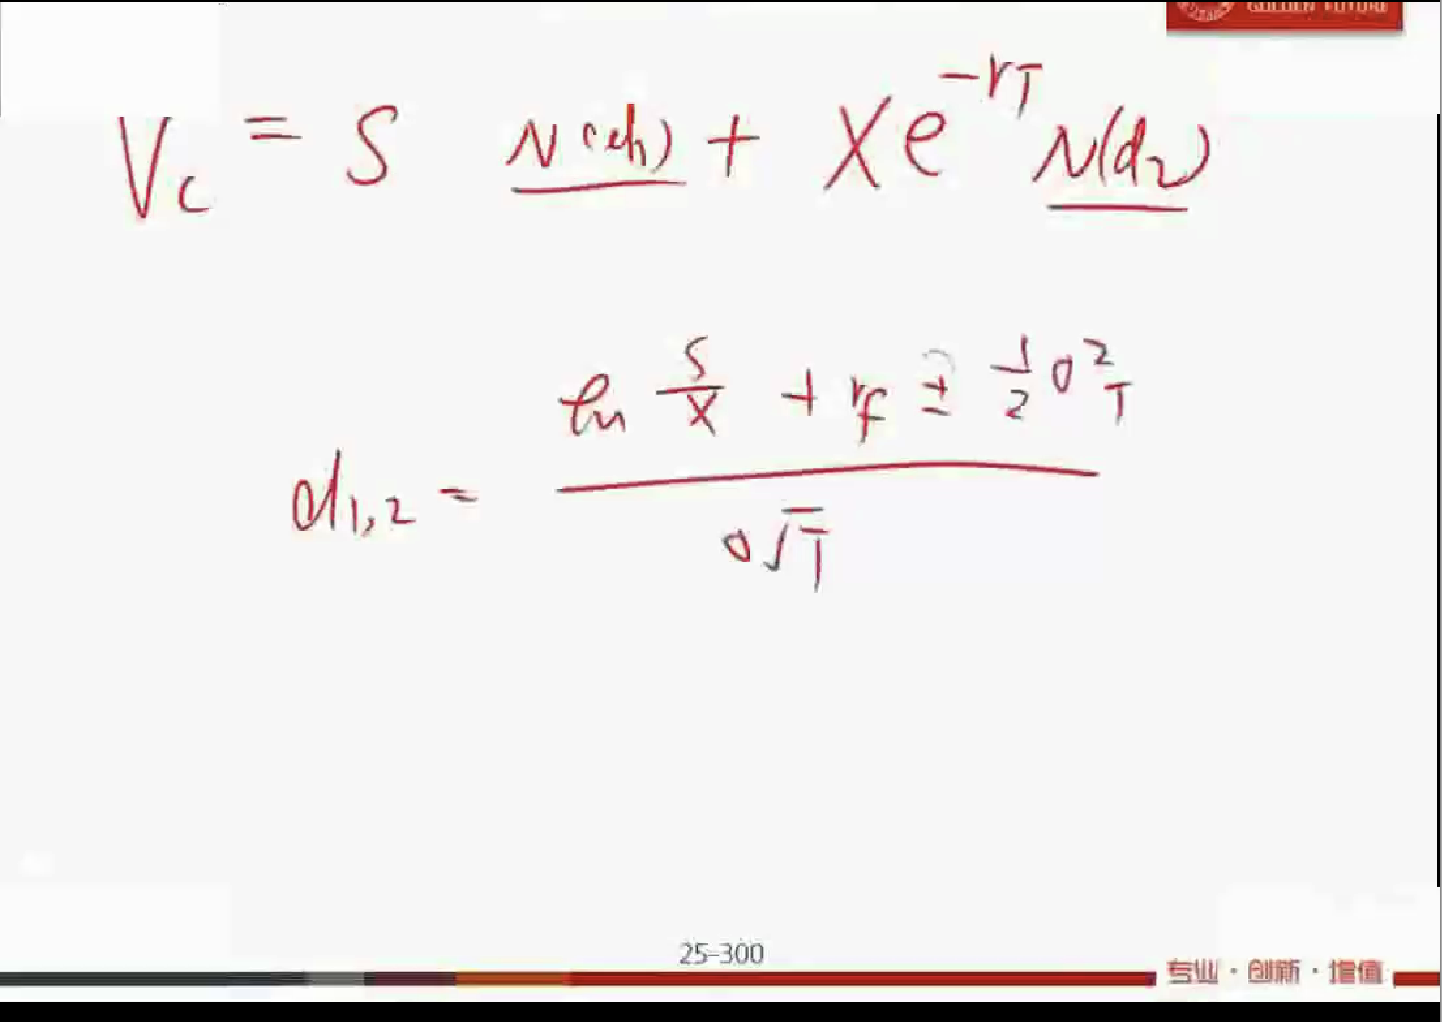 GOLDEN FUTURE
Vc = S N(d1) + Xe^{-rT} N(d2)
d1,2 = \frac{ln \frac{S}{X} + rf ± \frac{1}{2}σ^2 T}{σ√T}
25-300
专业·创新·增值